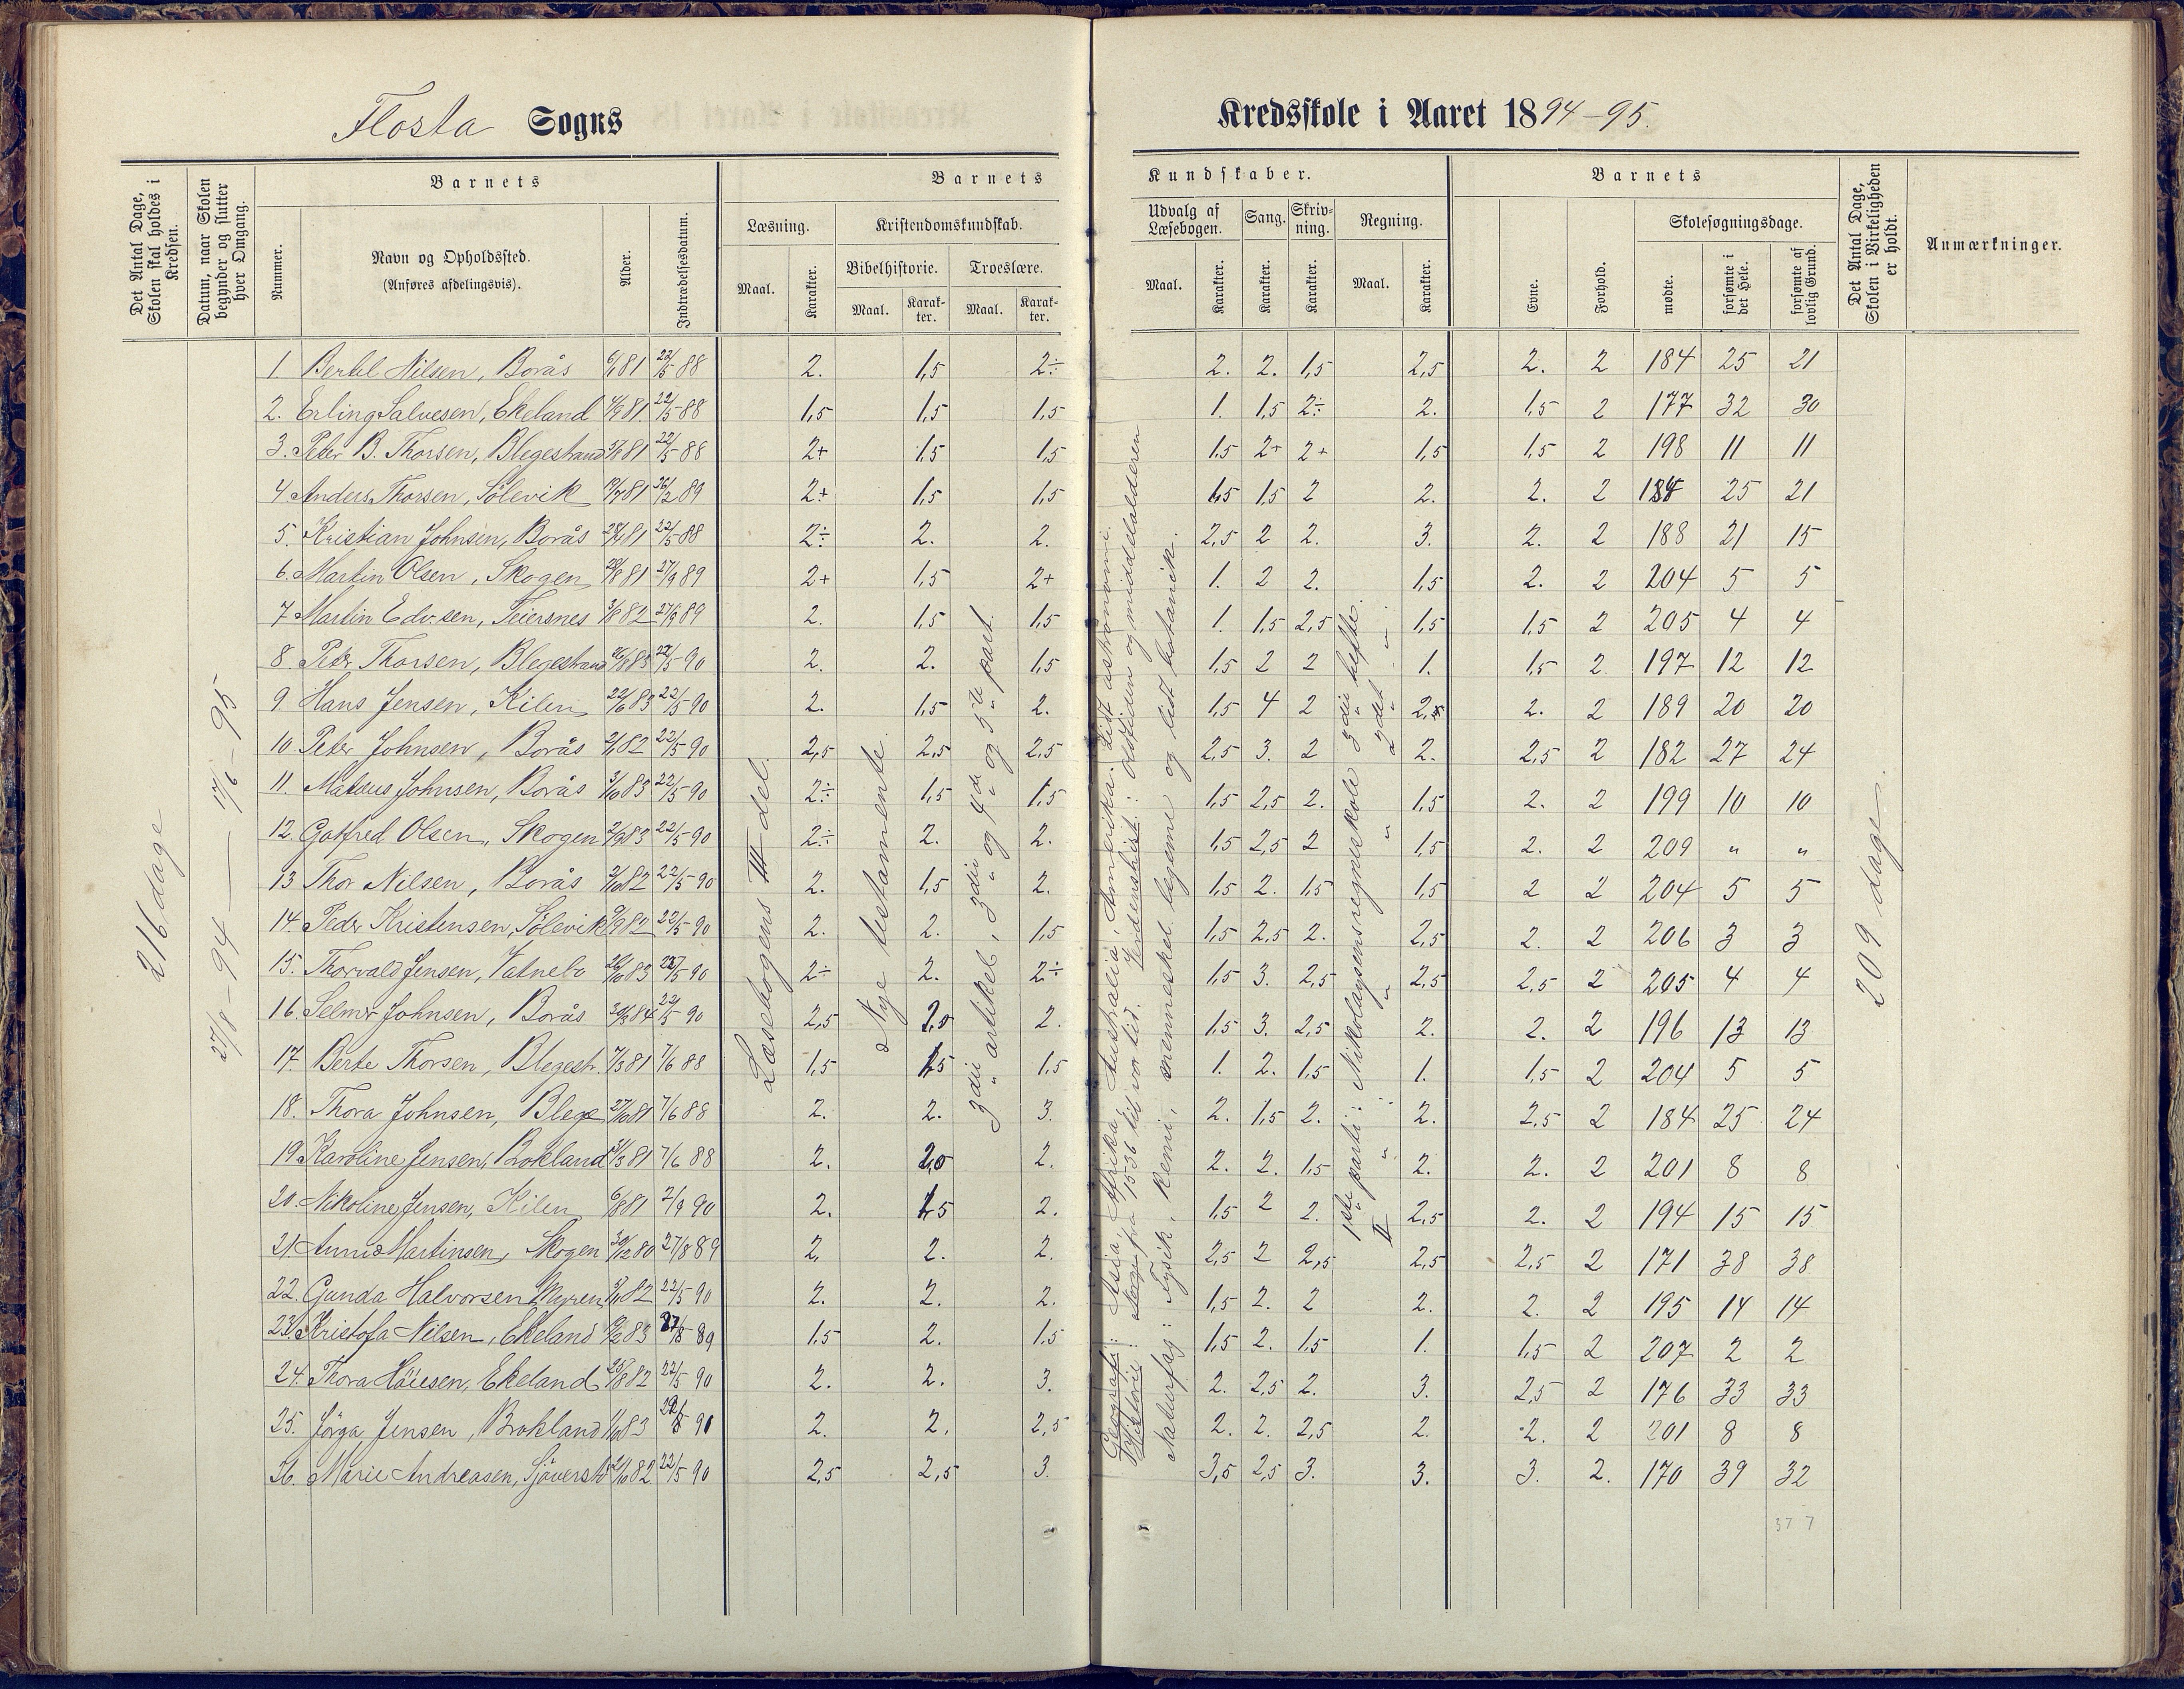 Flosta Sogns
Kredsskole i Aaret 1894-95.
Det Antal Dage, Skolen skal holdes i Kredsen.
Datum, naar Skolen begynder og slutter hver Omgang.
Barnets
Nummer.
Navn og Opholdssted.
(Anføres afdelingsvis).
Alder.
Indtrædelsesdatum.
Barnets
Kundskaber.
Læsning.
Maal.
Karakter.
Kristendomskundskab.
Bibelhistorie.
Maal.
Karak-ter.
Troeslære.
Maal.
Karak-ter.
Udvalg af Læsebogen.
Maal.
Karakter.
Sang.
Karakter.
Skriv-ning.
Karakter.
Regning.
Maal.
Karakter.
Barnets
Evne.
Forhold.
Skolesøgningsdage.
mødte.
forsømte i det Hele.
forsømte af lovlig Grund.
Det Antal Dage, Skolen i Virkeligheden er holdt.
Anmærkninger.
216 dage
27/8-94 — 17/6-95
Læsebogens III del.
Nye testamente.
3die artikel, 3die og 4de og 5te part.
Geografi: Asia, Afrika, Australia, Amerika. Lidt astronomi.
Historie: Norge fra 1536 til vor tid. Verdenshist.: oldtiden og middelalderen
Naturfag: Fysik, Kemi, mennesket legeme og lidt botanik.
1ste parti: Nikolaysens regneskole 3die hefte.
II " " " 2det "
209 dage
1. Bertel Nilsen, Borås 6/1 81 22/5 88 2. 1,5 2÷ 2. 2. 1,5 2,5 2. 2 184 25 21
2. Erling Salvesen, Ekeland 4/9 81. 22/5 88 1,5 1,5 1,5 1. 1,5 2÷ 2. 1,5 2 177 32 30
3. Peter B. Thorsen, Blegestrand 81 22/5 88 2+ 1,5 1,5 1,5 2+ 2+ 1,5 1,5 2 198 11 11
4. Anders Thorsen, Sölevik 19/7 81 26/2 89 2+ 1,5 1,5 1,5 1,5 2 2. 2. 2 184 25 21
5. Kristian Johnsen, Borås 81 22/5 88 2÷ 2. 2. 2,5 2 2. 3. 2. 2 188 21 15
6. Martin Olsen, Skogen 81 27/9 89 2+ 1,5 2+ 1. 2 2. 1,5 2. 2 204 5 5
7 Martin Edv.sen, Teiersnes 3/8 82 27/9 89 2. 1,5 1,5 1. 1,5 2,5 1,5 1,5 2 205 4 4
8. Peder Thorsen, Blegestrand 83 22/5 90 2. 2. 1,5 1,5 2 2 1. 1,5 2. 197 12 12
9. Hans Jensen, Kilen 22/6 83 22/5 90 2. 1,5 2. 1,5 4 2 2. 2 189 20 20
10. Peter Johnsen, Borås 2/1 82 22/5 90 2,5 2,5 2,5 2,5 3. 2 2. 2,5 2 182 27 24
11. Mateus Johnsen, Borås 3/10 83 22/5 90 2÷ 1,5 1,5 1,5 2,5 2. 1,5 2. 2 199 10 10
12. Gotfred Olsen, Skogen 2/9 83 22/5 90 2÷ 2. 2. 1,5 2,5 2 1,5 2. 2 209 " "
13 Thor Nilsen, Borås 82 22/5 90 2. 1,5 2. 1,5 2. 1,5 1,5 2 2 204 5 5
14. Peder Kristensen, Sölevik 9/9 82 22/5 90 2. 2. 1,5 1,5 2,5 2. 2,5 2. 2 206 3 3
15. Thorvald Jensen, Vatnebo 83 22/5 90 2÷ 2. 2÷ 1,5 3. 2,5 2,5 2,5 2 205 4 4
16. Selmer Johnsen, Borås 84 22/5 90 2,5 2,5 2. 1,5 3. 2,5 2. 2. 2 196 13 13
17. Berte Thorsen, Blegestr. 7/3 81 7/6 88 1,5 1,5 1,5 1. 2. 1,5 1. 1,5 2 204 5 5
18. Thora Johnsen, Blege 27/10 81 7/6 88 2. 2. 3. 2. 1,5 2. 2. 2,5 2 184 25 24
19. Karoline Jensen, Brokland 81 7/6 88 2. 2,0 2. 2. 2. 1,5 2. 2. 2 201 8 8
20. Nikoline Jensen, Kilen 6/8 81 2/9 90 2. 1,5 2. 1,5 2 2. 2,5 2. 2 194 15 15
21. Anna Martinsen, Skogen 30/12 80 27/8 89 2. 2. 2. 2,5 2 2,5 2,5 2,5 2 171 38 38
22. Gunda Halvorsen Myren 82 22/5 90 2. 2. 2. 1,5 2. 2 2. 2. 2 195 14 14
23. Kristofa Nilsen, Ekeland 83 27/8 89 1,5 2. 1,5 1,5 2. 1,5 1. 1,5 2 207 2 2
24. Thora Höiesen, Ekeland 25/8 82 22/5 90 2. 2. 3. 2. 2,5 2. 3. 2,5 2 176 33 33
25. Jörga Jensen, Brokland 83 2. 2. 2,5 2. 2. 2,5 2. 2. 2 201 8 8
26. Marie Andreasen, 82 22/5 90 2,5 2,5 3. 3,5 2,5 3. 3. 3. 2. 170 39 32
37 7